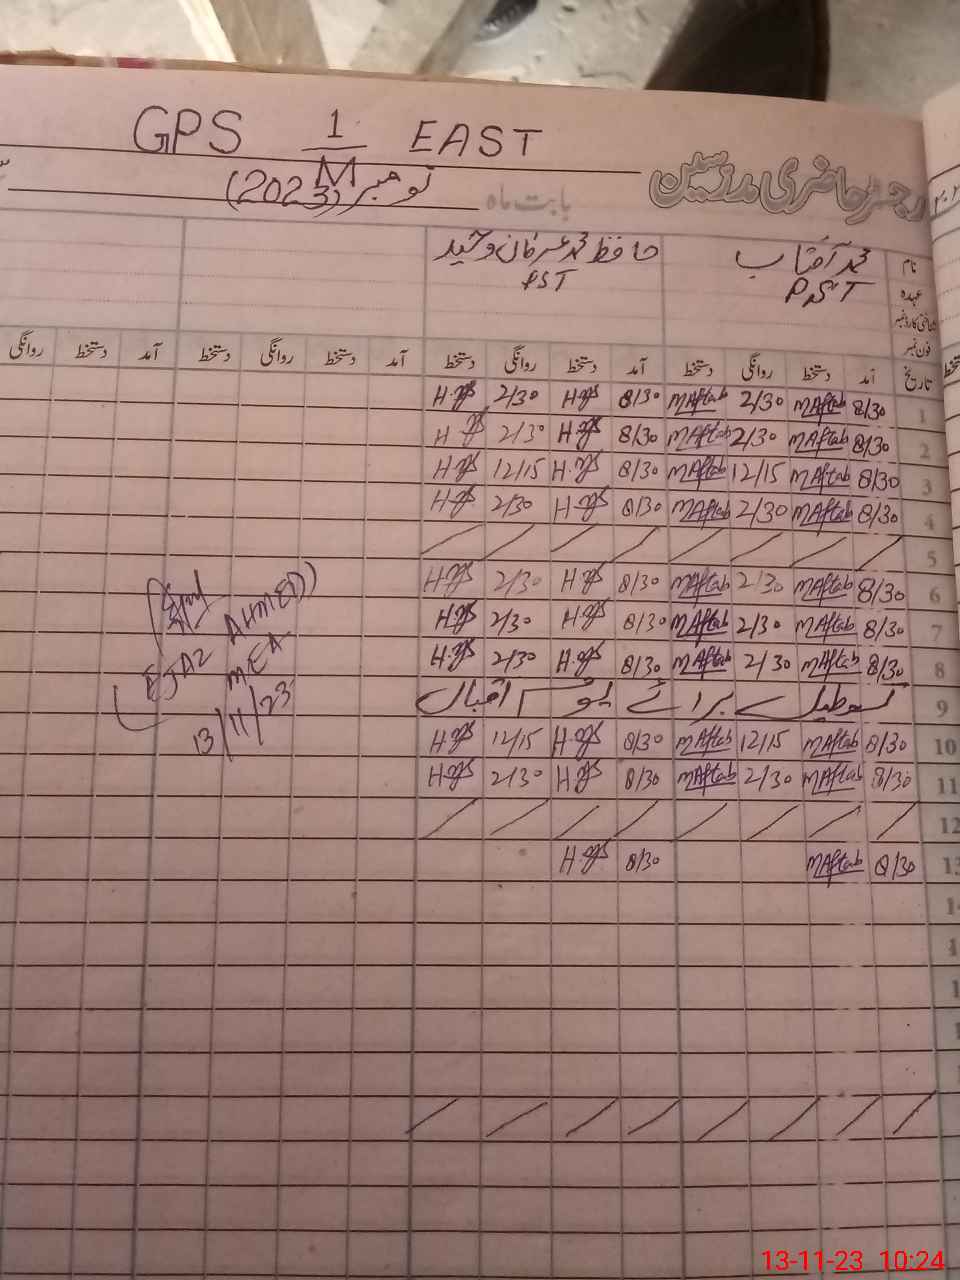 GPS 1/M EAST
رجسٹر حاضری مدرسین
بابت ماہ نومبر (2023)
نام محمد آفتاب حافظ محمد عرفان وحید
عہدہ PST PST
شناختی کارڈ نمبر
فون نمبر
تاریخ آمد دستخط روانگی دستخط آمد دستخط روانگی دستخط آمد دستخط روانگی دستخط آمد دستخط روانگی
1 8/30 MAftab 2/30 MAftab 8/30 2/30
2 8/30 MAftab 2/30 MAftab 8/30 2/30
3 8/30 MAftab 12/15 MAftab 8/30 12/15
4 8/30 MAftab 2/30 MAftab 8/30 2/30
5 / / / / / / / /
6 8/30 MAftab 2/30 MAftab 8/30 2/30
7 8/30 MAftab 2/30 MAftab 8/30 2/30
8 8/30 MAftab 2/30 MAftab 8/30 2/30
9 تعطیل برائے یوم اقبال
10 8/30 MAftab 12/15 MAftab 8/30 12/15
11 8/30 MAftab 2/30 MAftab 8/30 2/30
12 / / / / / / / /
13 8/30 MAftab 8/30
/ / / / / / / /
EJAZ AHMED
MEA
13/11/23
13-11-23 10:24